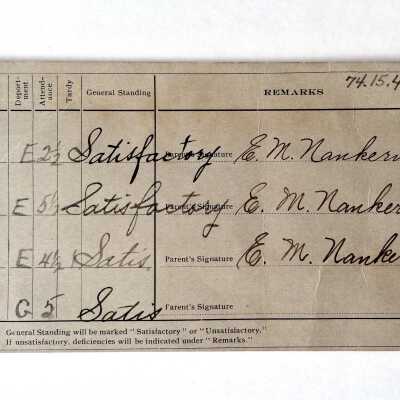 74.15.4
Deport-ment Attend-ance Tardy General Standing REMARKS
E 2½ Satisfactory Parent's Signature E. M. Nankerv
E 5½ Satisfactory Parent's Signature E. M. Nanker
E 4½ Satis Parent's Signature E. M. Nanke
G 5 Satis Parent's Signature
General Standing will be marked "Satisfactory" or "Unsatisfactory."
If unsatisfactory, deficiencies will be indicated under "Remarks."